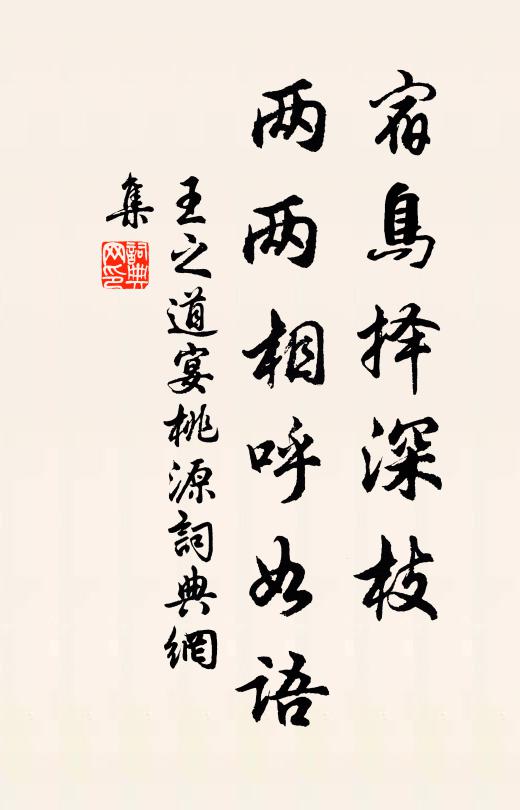 宿鳥择深枝
两两相呼如语
王之道宴桃源詞典網
集
詞典
网印